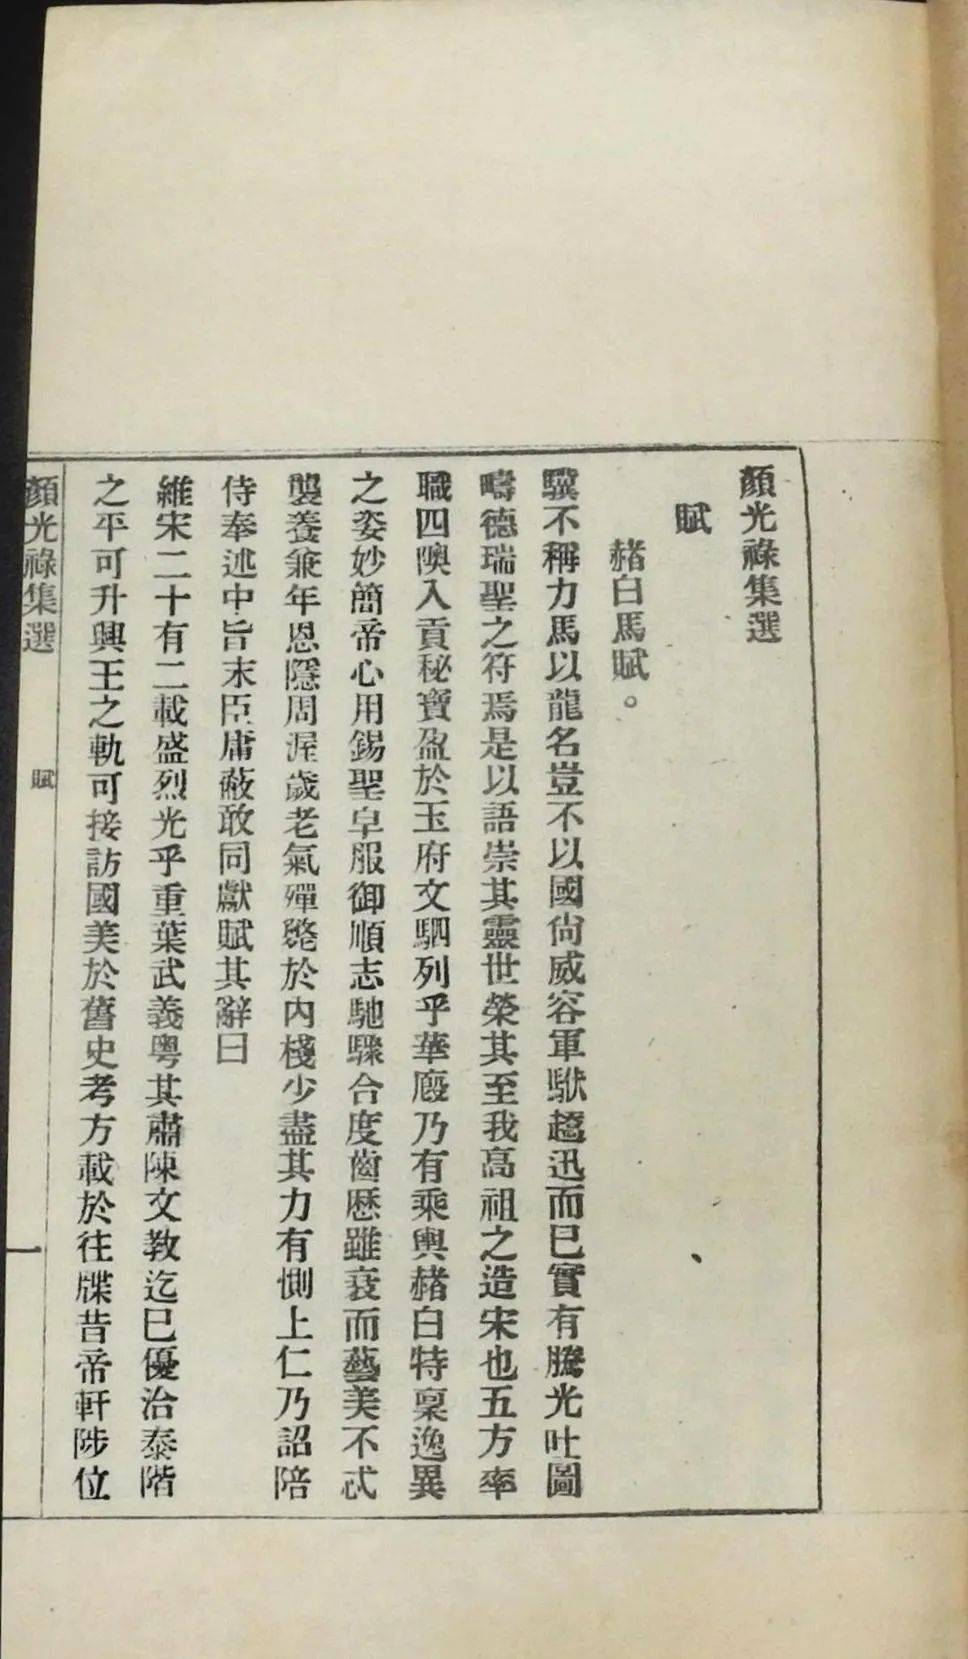 顏光祿集選
賦
赭白馬賦。
驥不稱力馬以龍名豈不以國尙威容軍駥趫迅而已實有騰光吐圖
疇德瑞聖之符焉是以語崇其靈世榮其至我高祖之造宋也五方率
職四隩入貢秘寶盈於玉府文駟列乎華廄乃有乘輿赭白特稟逸異
之姿妙簡帝心用錫聖皁服御順志馳驟合度齒歷雖衰而藝美不忒
襲養兼年恩隱周渥歲老氣殫斃於內棧少盡其力有惻上仁乃詔陪
侍奉述中旨末臣庸蔽敢同獻賦其辭曰
維宋二十有二載盛烈光乎重葉武義粤其肅陳文教迄已優洽泰階
之平可升興王之軌可接訪國美於舊史考方載於往牒昔帝軒陟位
顏光祿集選 賦 一